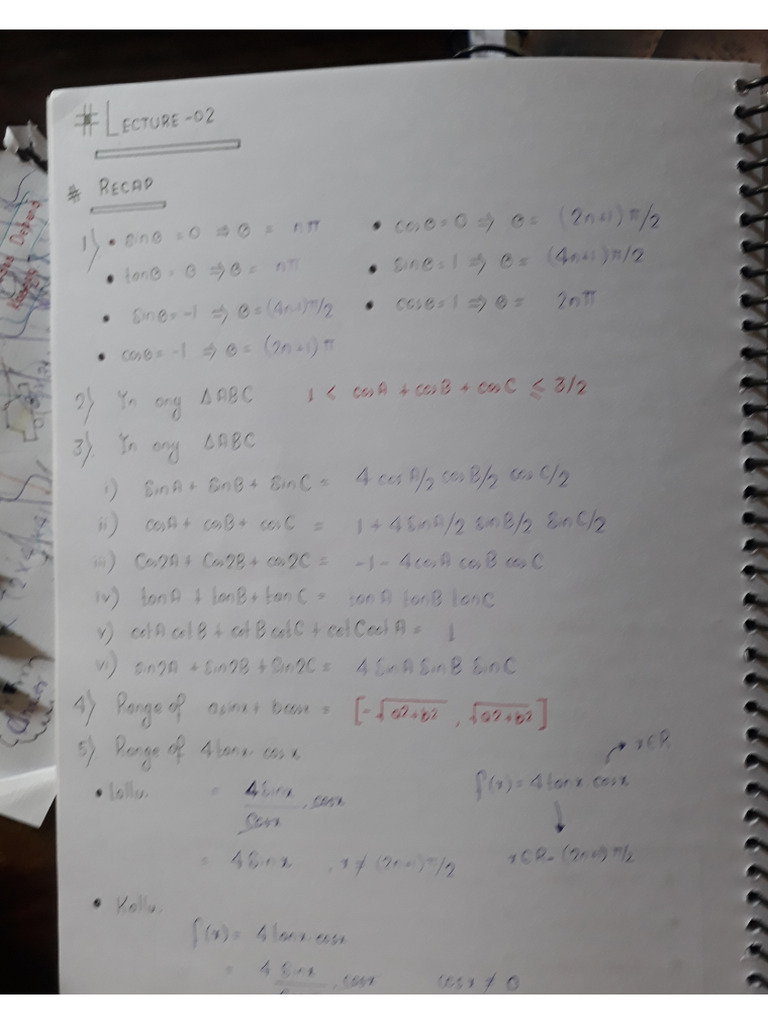 # LECTURE-02
# RECAP
1) • sinθ = 0 ⇒ θ = nπ • cosθ = 0 ⇒ θ = (2n+1)π/2
• tanθ = 0 ⇒ θ = nπ • sinθ = 1 ⇒ θ = (4n+1)π/2
• sinθ = -1 ⇒ θ = (4n-1)π/2 • cosθ = 1 ⇒ θ = 2nπ
• cosθ = -1 ⇒ θ = (2n+1)π
2) In any ΔABC 1 < cosA + cosB + cosC ≤ 3/2
3) In any ΔABC
i) SinA + SinB + SinC = 4 cosA/2 cosB/2 cosC/2
ii) cosA + cosB + cosC = 1 + 4 SinA/2 sinB/2 SinC/2
iii) Cos2A + Cos2B + cos2C = -1 - 4cosA cosB cosC
iv) tanA + tanB + tanC = tanA tanB tanC
v) cotA cotB + cotB cotC + cotC cotA = 1
vi) sin2A + sin2B + Sin2C = 4 SinA SinB SinC
4) Range of asinx + bcosx = [-√a2+b2, √a2+b2]
5) Range of 4tanx. cosx
x∈R
• Lallu. = 4Sinx/cosx . cosx f(x) = 4tanx cosx
= 4Sinx , x ≠ (2n+1)π/2 x∈R - (2n+1)π/2
• Kallu.
f(x) = 4tanx.cosx
= 4 Sinx . cosx cosx ≠ 0